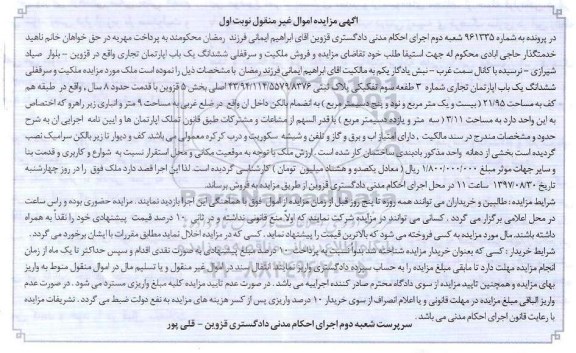 آگهی مزایده اموال غیر منقول نوبت اول
در پرونده به شماره ۹۶۱۳۳۵ شعبه دوم اجرای احکام مدنی دادگستری قزوین آقای ابراهیم ایمانی فرزند رمضان محکومند به پرداخت مهریه در حق خواهان خانم ناهید
خدمتگذار حاجی آبادی محکوم له جهت استیفا طلب خود تقاضای مزایده و فروش ملکیت و سرقفلی ششدانگ یک باب آپارتمان تجاری واقع در قزوین - بلوار صیاد
شیرازی - نرسیده با کانال سمت غرب - نبش یادگار یکم به مالکیت آقای ابراهیم ایمانی فرزند رمضان با مشخصات ذیل را نموده است ملک مورد مزایده ملکیت و سرقفلی
ششدانگ یک باب آپارتمان تجاری شماره ۳ طبقه سوم تفکیکی پلاک ثبتی ۴۳/۹۴/۱۱۴/۵۵۷۹۸۳۷۶ اصلی بخش ۵ قزوین با قدمت حدود ۸ سال، واقع در طبقه هم
کف به مساحت ۲۱/۹۵ (بیست و یک متر مربع و نود و پنج دسیمتر مربع) به انضمام بالکن داخل آن واقع در ضلع غربی به مساحت ۹ متر و انباری زیر راهرو که اختصاص
به این واحد دارد به مساحت ۳/۱۱ (سه متر و یازده دسیمتر مربع) با قدر السهم از مشاعات و مشترکات طبق قانون تملک آپارتمان ها و آیین نامه اجرایی آن به شرح
حدود و مشخصات مندرج در سند مالکیت، دارای امتیاز آب و برق و گاز و تلفن و شیشه سکوریت و درب کرکره معمولی می باشد. کف و دیوار تا زیر بالکن سرامیک نصب
گردیده است بخشی از دهانه واحد مذکور بادبندی ساختمان کار شده است. ارزش ملک با توجه به موقعیت مکانی و محل استقرار نسبت به شوارع و کاربری و قدمت بنا
و سایر جهات موثر مبلغ ۱/۸۰۰/۰۰۰/۰۰۰ ریال (معادل یکصدو و هشتاد میلیون تومان) کارشناسی گردیده است. لذا این اجرا قصد دارد ملک فوق را در روز چهارشنبه
تاریخ ۱۳۹۷/۰۸/۳۰ ساعت ۱۱ در محل اجرای احکام مدنی دادگستری قزوین از طریق مزایده به فروش برساند.
شرایط مزایده: طالبین و خریداران می توانند همه روزه تا پنج روز قبل از زمان مزایده از اموال فوق با هماهنگی این اجرا بازدید نمایند. مزایده حضوری بوده و راس ساعت
در محل اعلامی برگزار می گردد. کسانی می توانند در مزایده شرکت نمایند که اولاً منع قانونی نداشته و در ثانی ۱۰ درصد قیمت پیشنهادی خود را نقداً به همراه
داشته باشند. مال مورد مزایده به کسی فروخته می شود که بالاترین قیمت را پیشنهاد نماید. کسی که در مزایده اخلال نماید مطابق مقررات با ایشان برخورد می گردد.
شرایط خریدار: کسی که بعنوان خریدار مزایده شناخته شد بدوا نسبت به پرداخت ۱۰ درصد مبلغ پیشنهادی به صورت نقدی اقدام و سپس حداکثر تا یک ماه از زمان
انجام مزایده مهلت دارد تا مابقی مبلغ مزایده را به حساب سپرده دادگستری واریز نمایند انتقال سند در اموال غیر منقول و یا تسلیم مال در اموال منقول منوط به واریز
بهای مزایده و همچنین تایید مزایده از سوی دادگاه محترم صادر کننده اجراییه می باشد. در صورت عدم تایید مزایده کلیه مبلغ واریزی مسترد می شود. در صورت عدم
واریز الباقی مبلغ مزایده در مهلت قانونی و یا اعلام انصراف از سوی خریدار ۱۰ درصد واریزی پس از کسر هزینه های مزایده به نفع دولت ضبط می گردد. تشریفات مزایده
با رعایت قانون اجرای احکام مدنی می باشد.
سرپرست شعبه دوم اجرای احکام مدنی دادگستری قزوین - قلی پور